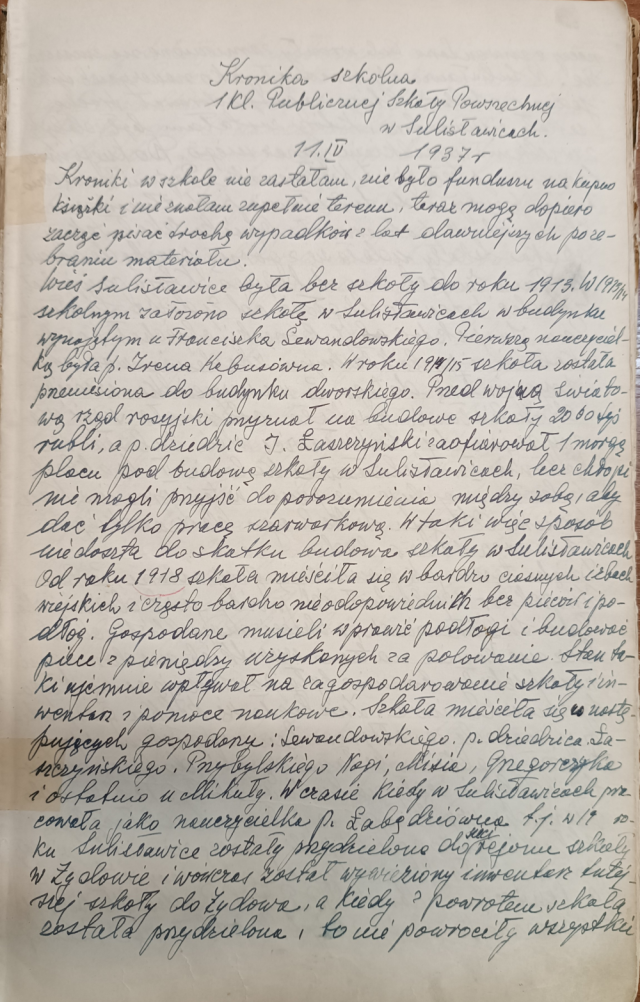 Kronika szkolna
1 Kl. Publicznej Szkoły Powszechnej
w Sulisławicach.
11.IV 1937 r
Kroniki w szkole nie zastałam, nie było funduszu na kupno
książki i nie znałam zupełnie terenu, teraz mogę dopiero
zacząć pisać trochę wypadków z lat dawniejszych po ze-
braniu materiału.
Wieś Sulisławice była bez szkoły do roku 1913. W 1913/14
szkolnym założono szkołę w Sulisławicach w budynku
wynajętym u Franciszka Lewandowskiego. Pierwszą nauczyciel-
ką była p. Irena Kebusówna. W roku 1914/15 szkoła została
przeniesiona do budynku dworskiego. Przed wojną świato-
wą rząd rosyjski przyznał na budowę szkoły
rubli, a p. dziedzic J. Łaszczyński zaofiarował 1 morgę
placu pod budowę szkoły w Sulisławicach, lecz chłopi
nie mogli przyjść do porozumienia między sobą, aby
dać tylko pracę szarwarkową. W taki więc sposób
nie doszła do skutku budowa szkoły w Sulisławicach
Od roku 1918 szkoła mieściła się w bardzo ciasnych izbach
wiejskich i często bardzo nieodpowiednich bez pieców i po-
dłóg. Gospodarze musieli wprawić podłogi i budować
piece z pieniędzy uzyskanych za polowanie. Stan ta-
ki ujemnie wpływał na zagospodarowanie szkoły i in-
wentarz i pomoce naukowe. Szkoła mieściła się u nastę-
pujących gospodarzy: Lewandowskiego. p. dziedzica Ła-
szczyńskiego. Przybylskiego Nogi, Misia, Grzegorczyka
i ostatnio u Mikuły. W czasie kiedy w Sulisławicach pra-
cowała jako nauczycielka p. Łabędziówna t.j. w 19 ro-
ku Sulisławice zostały przydzielone do rejonu szkoły
w Żydowie i wówczas został wywieziony inwentarz tutej-
szej szkoły do Żydowa, a kiedy z powrotem szkoła
została przydzielona, to nie powróciły wszystkie